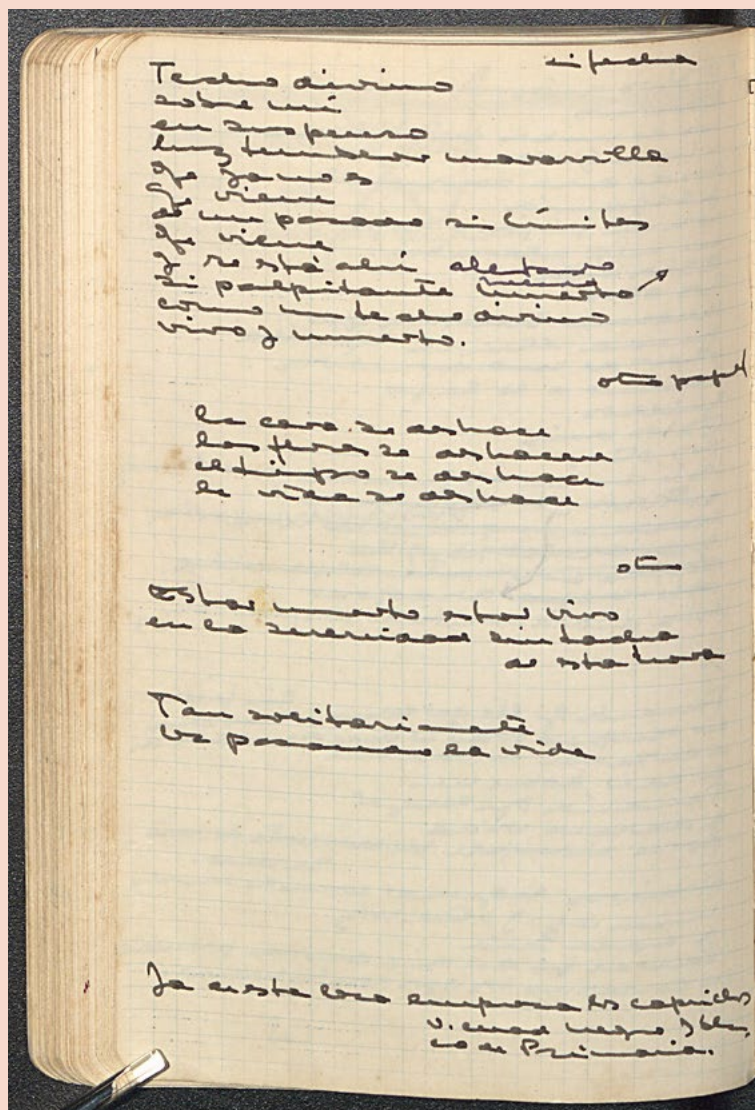 sin fecha
Techo divino
sobre mí
en suspenso
luz tumba maravilla
q. ya no es
q. viene
de un pasado sin límites
q. viene
y se está ahí aleteando
si palpitante muerto
como un techo divino
vivo y muerto.
otro papel
la cara se deshace
las flores se deshacen
el tiempo se deshace
la vida se deshace
otro
Estar muerto estar vivo
en la serenidad sin tacha
de esta hora
Tan solitariamente
va pasando la vida
Ya en esta casa empiezan los caprichos
v. cuad. negro y blan
co de Primaria.